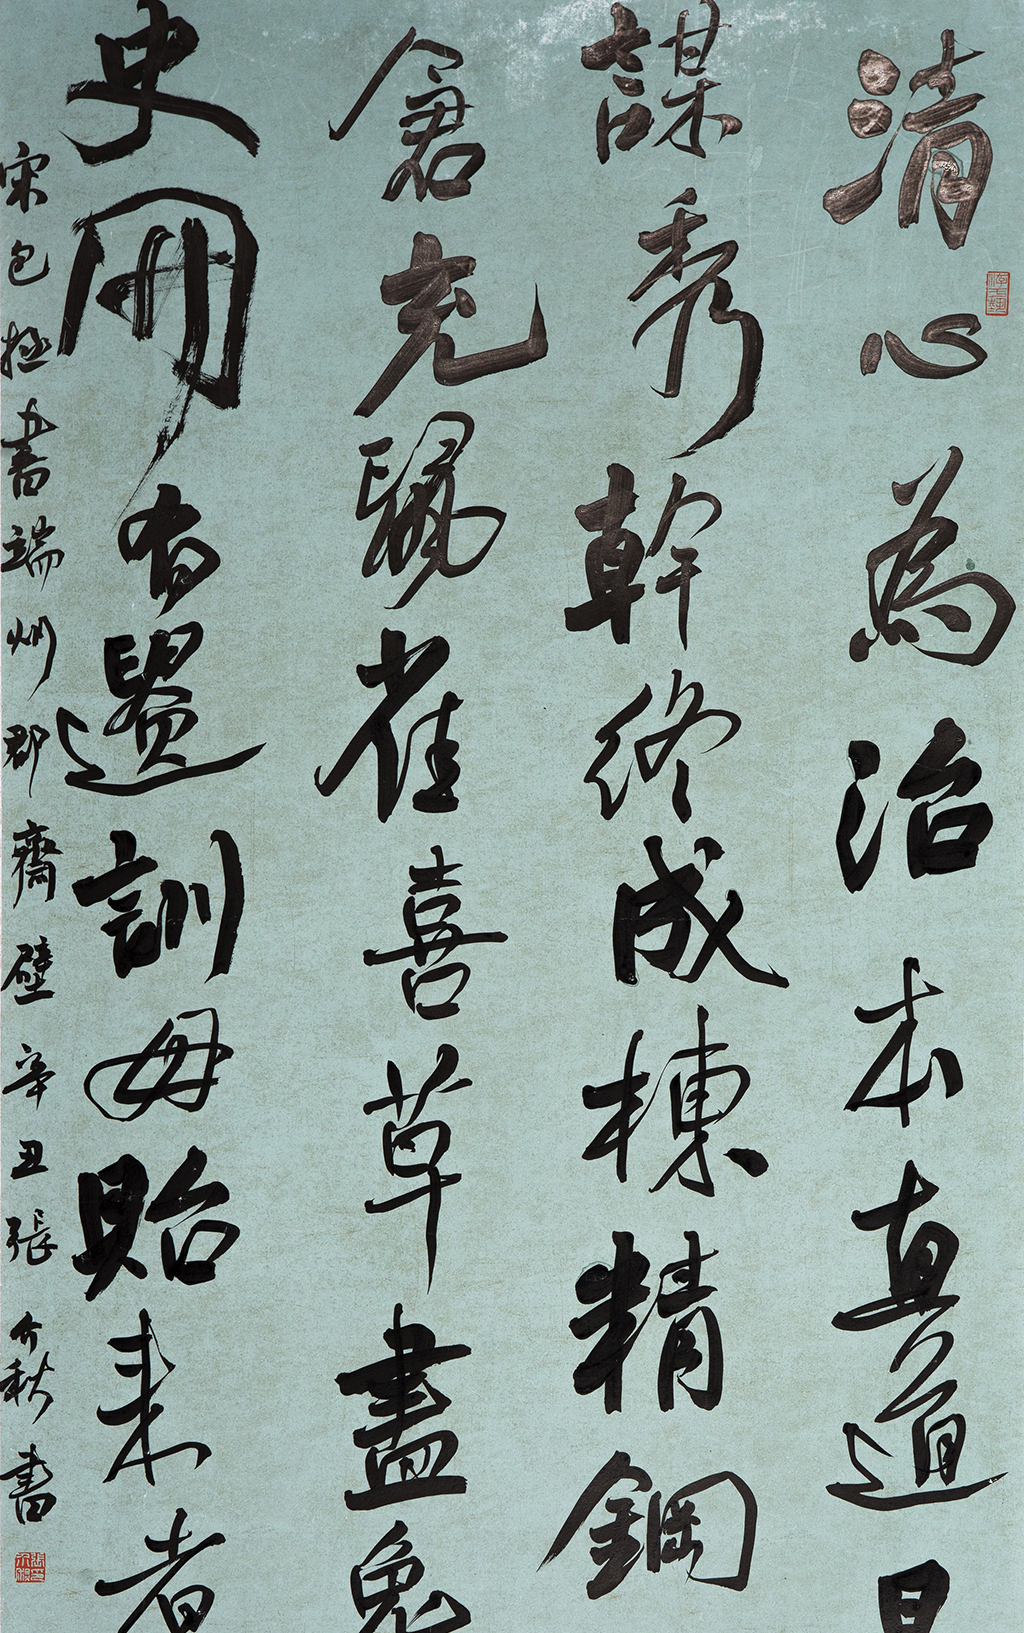 清心為治本直道
謀秀幹終成棟精鋼
倉充鼠雀喜草盡兔
史冊有遺訓毋貽來者
宋包拯書端州郡齋壁辛丑張介秋書